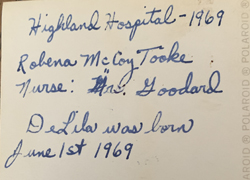 Highland Hospital - 1969
Robena McCoy Tooke
Nurse: Mrs. Goodard
DeLila was born
June 1st 1969
POLAROID ® POLAROID ®